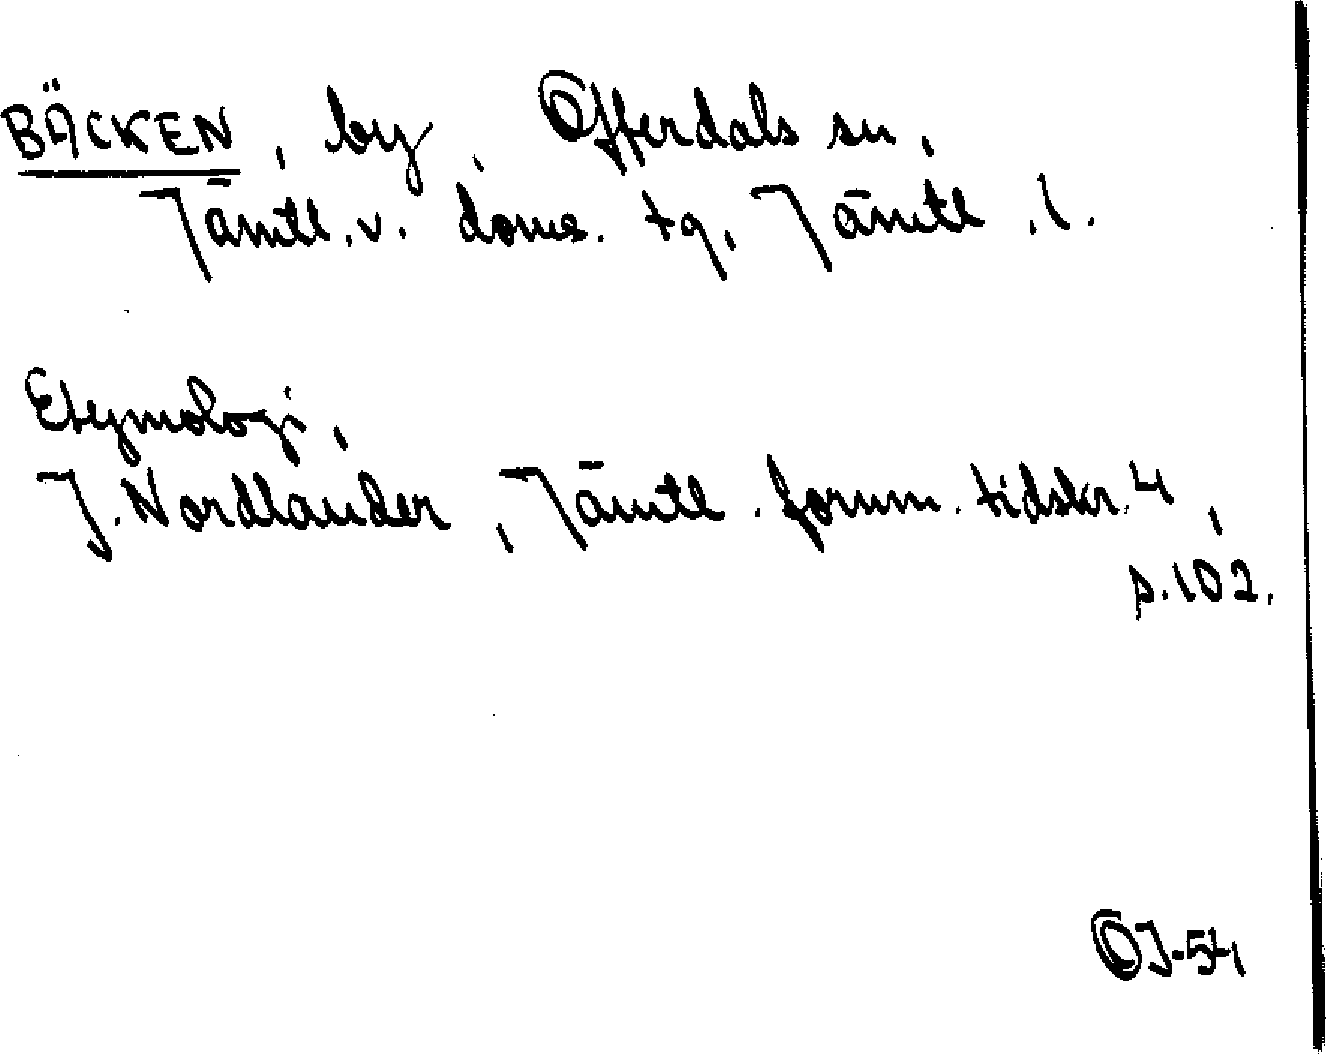 BÄCKEN, by, Offerdals sn,
Jämtl. v. doms. tg, Jämtl. l.
Etymologi,
J. Nordlander, Jämtl. fornm. tidskr. 4,
s. 102.
OJ-54